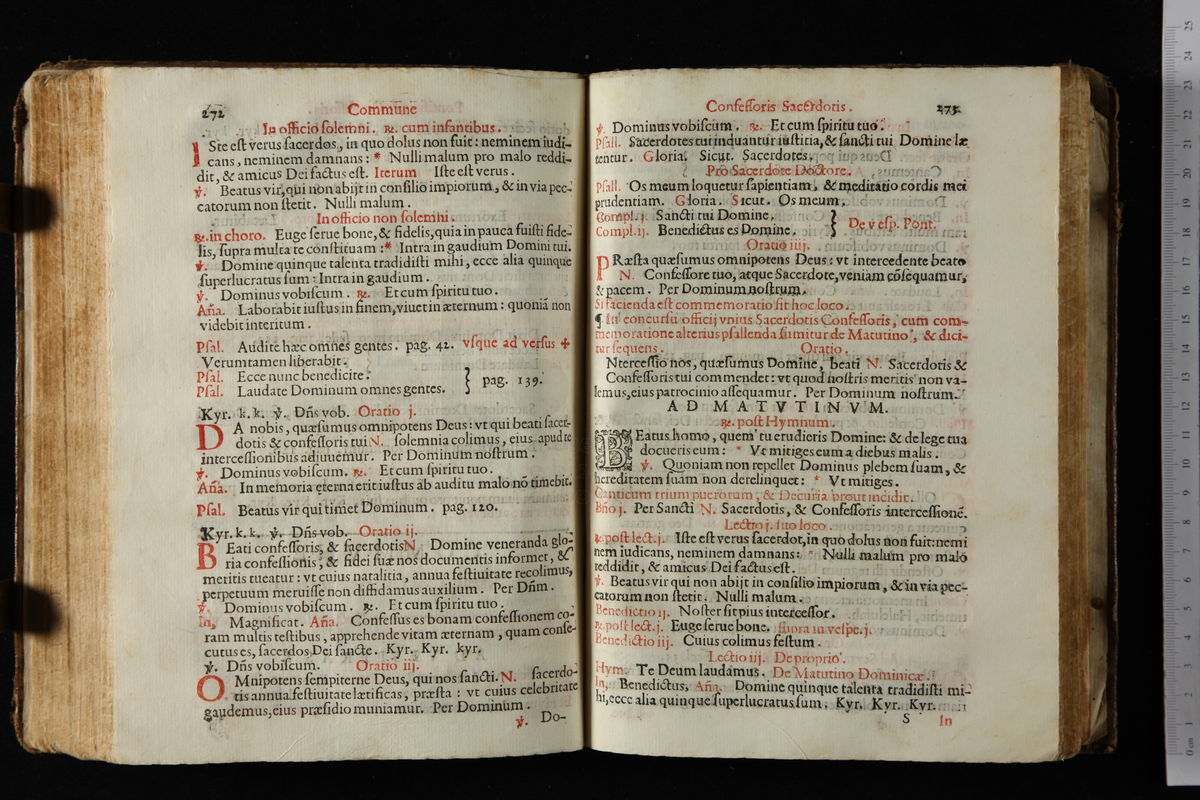 272 Commune
In officio ſolemni. ℟. cum infantibus.
ISte eſt verus ſacerdos, in quo dolus non fuit: neminem iudi-
cans, neminem damnans: * Nulli malum pro malo reddi-
dit, & amicus Dei factus eſt. Iterum Iſte eſt verus.
℣. Beatus vir, qui non abijt in conſilio impiorum, & in via pec-
catorum non ſtetit. Nulli malum.
In officio non ſolemni.
℟. in choro. Euge ſerue bone, & fidelis, quia in pauca fuiſti fide-
lis, ſupra multa te conſtituam: * Intra in gaudium Domini tui.
℣. Domine quinque talenta tradidiſti mihi, ecce alia quinque
ſuperlucratus ſum: Intra in gaudium.
℣. Dominus vobiſcum. ℟. Et cum ſpiritu tuo.
Aña. Laborabit iuſtus in finem, viuet in æternum: quoniā non
videbit interitum.
Pſal. Audite hæc omnes gentes. pag. 42. vſque ad verſus ✠
Verumtamen liberabit.
Pſal. Ecce nunc benedicite.
Pſal. Laudate Dominum omnes gentes. } pag. 139.
Kyr. k. k. ℣. Dñs vob. Oratio j.
DA nobis, quæſumus omnipotens Deus: vt qui beati ſacer-
dotis & confeſſoris tui N. ſolemnia colimus, eius apud te
interceſſionibus adiuuemur. Per Dominum noſtrum.
℣. Dominus vobiſcum. ℟. Et cum ſpiritu tuo.
Aña. In memoria ęterna erit iuſtus ab auditu malo nō timebit.
Pſal. Beatus vir qui timet Dominum. pag. 120.
Kyr. k. k. ℣. Dñs vob. Oratio ij.
BEati confeſſoris, & ſacerdotis N. Domine veneranda glo-
ria confeſſionis, & fidei ſuæ nos documentis informet, &
meritis tueatur: vt cuius natalitia, annua feſtiuitate recolimus,
perpetuum meruiſſe non diffidamus auxilium. Per Dñm.
℣. Dominus vobiſcum. ℟. Et cum ſpiritu tuo.
In, Magnificat. Aña. Confeſſus es bonam confeſſionem co-
ram multis teſtibus, apprehende vitam æternam, quam conſe-
cutus es, ſacerdos Dei ſancte. Kyr. Kyr. kyr.
℣. Dñs vobiſcum. Oratio iij.
OMnipotens ſempiterne Deus, qui nos ſancti N. ſacerdo-
tis annua feſtiuitate lætificas, præſta: vt cuius celebritate
gaudemus, eius præſidio muniamur. Per Dominum.
℣. Do-
Confeſſoris Sacerdotis. 273.
℣. Dominus vobiſcum. ℟. Et cum ſpiritu tuo.
Pſall. Sacerdotes tui induantur iuſtitia, & ſancti tui Domine læ
tentur. Gloria. Sicut. Sacerdotes.
Pro Sacerdote Doctore.
Pſall. Os meum loquetur ſapientiam, & meditatio cordis mei
prudentiam. Gloria. Sicut. Os meum.
Compl. j. Sancti tui Domine.
Compl. ij. Benedictus es Domine. } De veſp. Pont.
Oratio iiij.
PRæſta quæſumus omnipotens Deus: vt intercedente beato
N. Confeſſore tuo, atque Sacerdote, veniam cōſequamur,
& pacem. Per Dominum noſtrum.
Si facienda eſt commemoratio fit hoc loco.
¶ In concurſu officij vnius Sacerdotis Confeſſoris, cum com-
memoratione alterius pſallenda ſumitur de Matutino, & dici-
tur ſequens. Oratio.
Nterceſſio nos, quæſumus Domine, beati N. Sacerdotis &
Confeſſoris tui commendet: vt quod noſtris meritis non va-
lemus, eius patrocinio aſſequamur. Per Dominum noſtrum.
AD MATVTINVM.
℟. poſt Hymnum.
BEatus homo, quem tu erudieris Domine: & de lege tua
docueris eum: * Vt mitiges eum a diebus malis.
℣. Quoniam non repellet Dominus plebem ſuam, &
hereditatem ſuam non derelinquet: * Vt mitiges.
Canticum trium puerorum, & Decuria prout incidit.
Bño j. Per Sancti N. Sacerdotis, & Confeſſoris interceſſionē.
Lectio j. ſuo loco.
℟. poſt lect. j. Iſte eſt verus ſacerdot, in quo dolus non fuit: nemi
nem iudicans, neminem damnans: * Nulli malum pro malo
reddidit, & amicus Dei factus eſt.
℣. Beatus vir qui non abijt in conſilio impiorum, & in via pec-
catorum non ſtetit. Nulli malum.
Benedictio ij. Noſter ſit pius interceſſor.
℟. poſt lect. j. Euge ſerue bone. ſupra in veſpe. j.
Benedictio iij. Cuius colimus feſtum.
Lectio iij. De proprio.
Hym. Te Deum laudamus. De Matutino Dominicæ.
In, Benedictus, Aña. Domine quinque talenta tradidiſti mi-
hi, ecce alia quinque ſuperlucratus ſum. Kyr. Kyr. Kyr.
S In